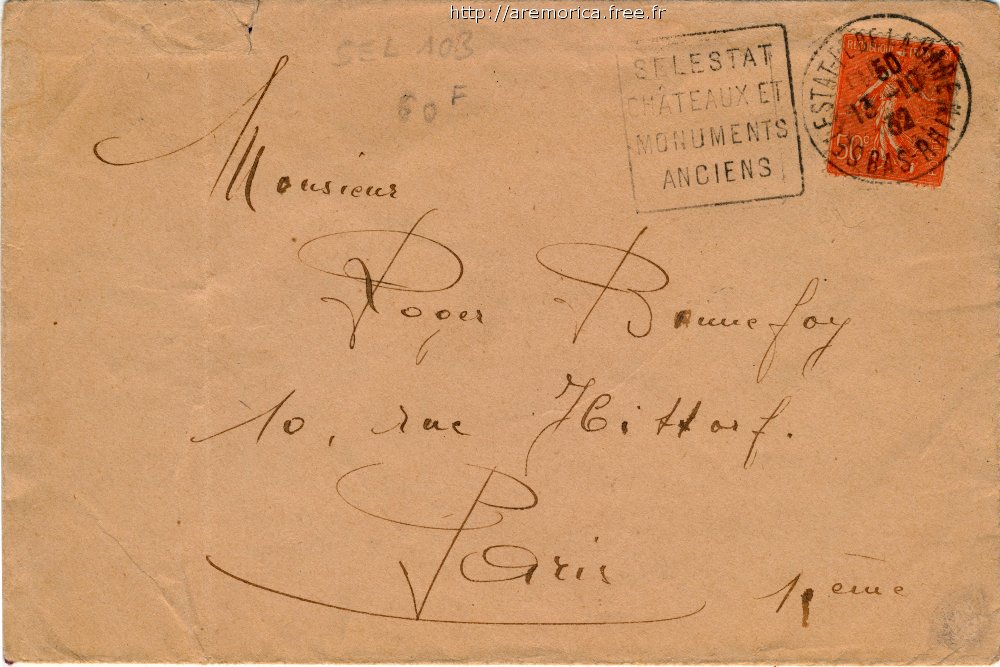 http://aremorica.free.fr
SEL 103
60 F
SELESTAT
CHÂTEAUX ET
MONUMENTS
ANCIENS
50
13 -10
32
BAS-RHIN
50c
Monsieur
Roger Bonnefoy
10, rue Hittorf.
Paris